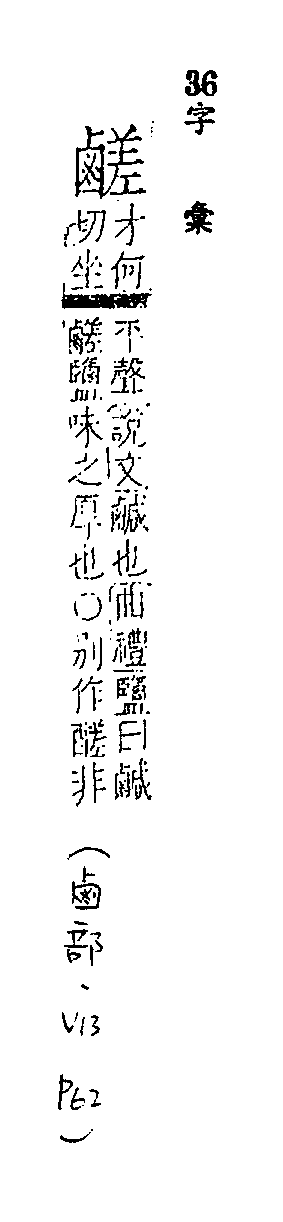 36字彙
鹺
才何
切坐
平聲說文鹹也曲禮鹽曰鹹
鹺鹽味之厚也○別作醝非
(鹵部、V13 P62)